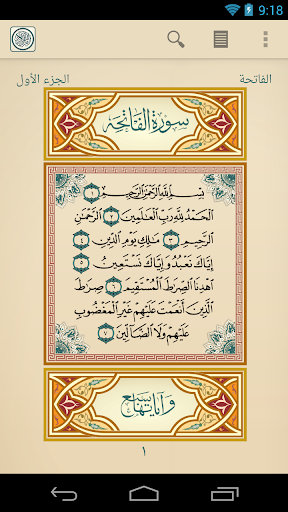 9:18
الفاتحة
الجزء الأول
سورة الفاتحة
بسم الله الرحمن الرحيم ١
الحمد لله رب العالمين ٢ الرحمن
الرحيم ٣ ملك يوم الدين ٤
إياك نعبد وإياك نستعين ٥
اهدنا الصرط المستقيم ٦ صرط
الذين أنعمت عليهم غير المغضوب
عليهم ولا الضالين ٧
وآياتها سبع
١